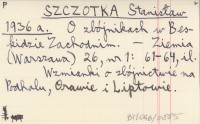 SZCZOTKA Stanisław
1936 a. O zbójnikach w Bes-
kidzie Zachodnim. — Ziemia
(Warszawa) 26, nr 1: 61-64, il.
Wzmianki o zbójnictwie na
Podhalu, Orawie i Liptowie.